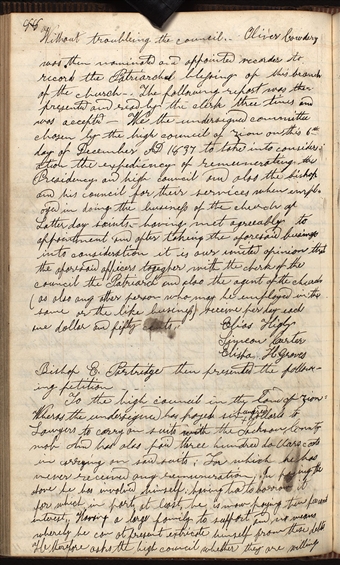 96
Without troubling the council. Oliver Cowdery
was then nominated and appointed recorder to
record the Patriarchal blessings of this branch
of the church. The following report was then
presented and read by the clerk three times and
was accepted We the undersigned committee
chosen by the high council of Zion on this 6th
day of December AD 1837 to take into consider-
ation the expediency of remunerating the
Presidency and high council and also the bishop
and his council for their services when empl-
oyed in doing the business of the church of
Latter day saints having met agreeably to
appointment and after taking the aforesaid business
into consideration it is our united opinion that
the aforsaid officers together with the clerk of the
council the Patriarch and also the agent of the church
(as also any other person who may be employed in the
same or the like business) receive per day each
one dollar and fifty cents.
Elias Higby
Simeon Carter
Elisha H Groves
Bishop E. Partridge then presented the follow-
ing petition
To the high council in the Land of Zion:
Whereas the undersigned has payed six hundred dollars to
Lawyers to carry on suits with the Jackson County
mob And has also paid three hundred dollars cost
in carrying on said suits; For which he has
never received any remuneration, In paying the
above he has involved himself, having had to borrow it
for which in part, at least, he is now paying ten percent
interest, Having a large family to support and no means
whereby he can at present extricate himself from these debts
He therefore asks the high council whether they are willing